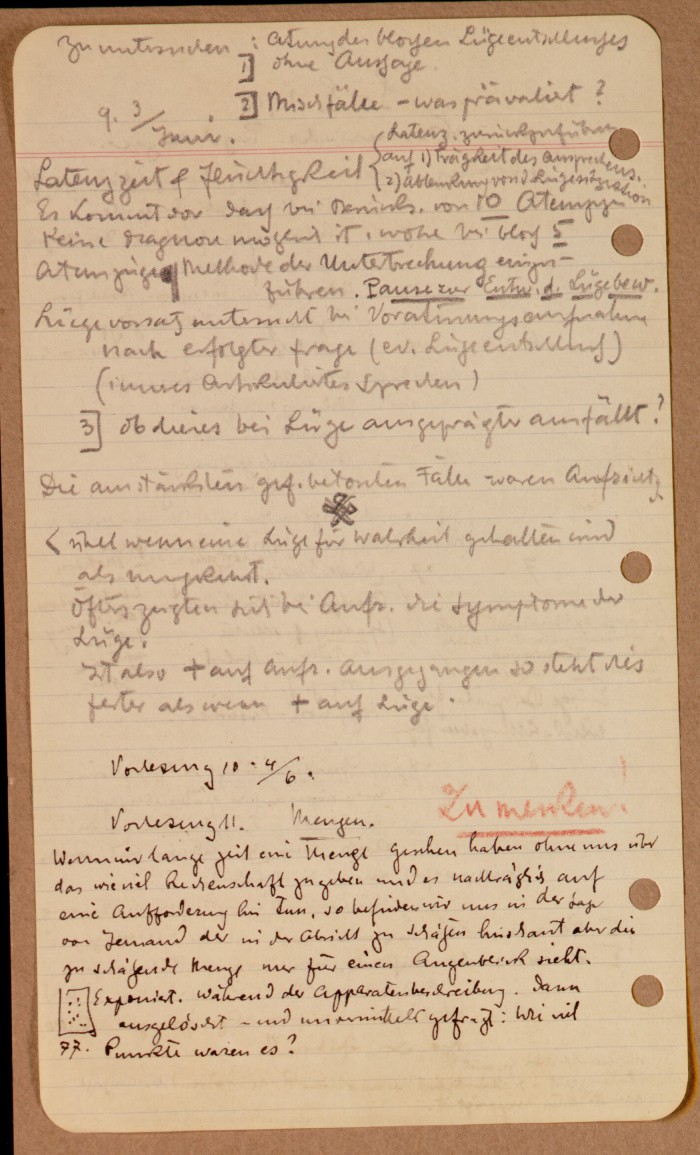 Zu untersuchen: Atmung des blossen Lügeentschlusses
1] ohne Aussage
2] Mischfälle – was prävaliert?
9. 3/Juni.
Latenz zurückzuführen
Latenzzeit & Flüchtigkeit auf 1) Trägheit des Ansprechens.
2) Ablenkung von d Lügesituation
Es kommt vor dass bei Berücks. von 10 Atemzügen
keine Diagnose möglich ist, wohl bei bloss 5
Atemzügen Methode der Unterbrechung einzu-
führen. Pause zur Entw. d. Lügebew.
Lügevorsatz untersucht bei Voratmungsaufnahme
nach erfolgter Frage (ev. Lügeentschluss)
(inneres Artikuliertes Sprechen)
3] ob dieses bei Lüge ausgeprägter ausfällt?
Die am stärksten gef. betonten Fälle waren Aufricht.
übel wenn eine Lüge für Wahrheit gehalten wird
als umgekehrt.
Öfters zeigten sich bei Aufr. die Symptome der
Lüge.
Ist also + auf Aufr. ausgegangen so steht dies
fester als wenn + auf Lüge.
Vorlesung 10. 4/6.
Vorlesung 11. Mengen. Zu merken!
Wenn wir lange Zeit eine Menge gesehen haben ohne uns über
das wieviel Rechenschaft zu geben und es nachträglich auf
eine Aufforderung hin tun, so befinden wir uns in der Lage
von Jemand der in der Absicht zu schätzen hinschaut aber die
zu schätzende Menge nur für einen Augenblick sieht.
Exponiert. während der Apparatenbeschreibung. Dann
ausgelöscht – und unvermittelt gefragt: Wie viel
77. Punkte waren es?